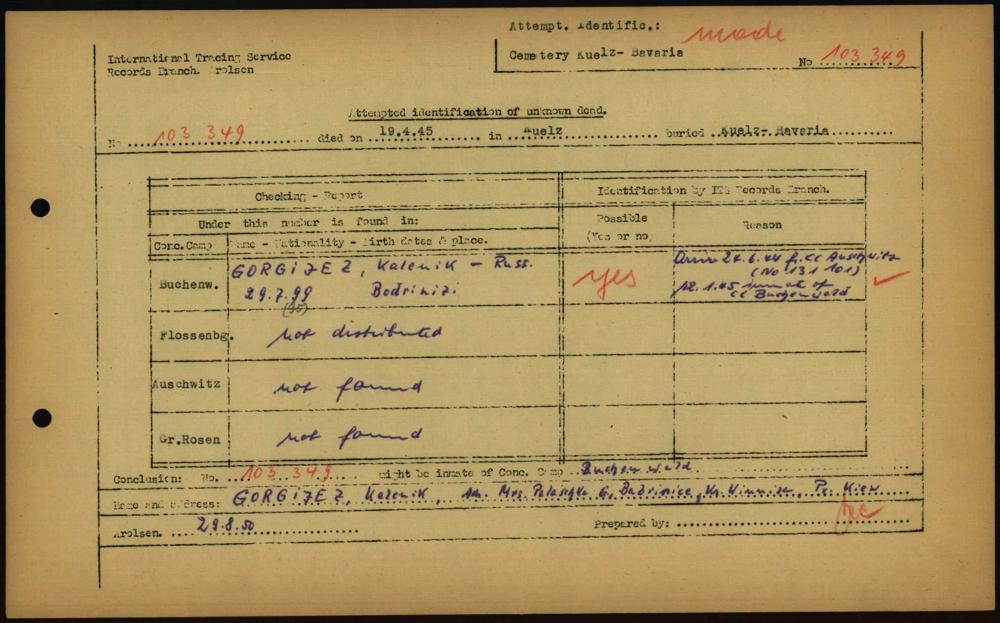 Attempt. Identific.: made
International Tracing Service
Cemetery Kuelz- Bavaria
Records Branch. Arolsen
No 103 349
Attempted identification of unknown dead.
No 103 349 died on 19.4.45 in Auelz buried Auelz-Bavaria
Checking - Report
Identification by ITS Records Branch.
Under this number is found in:
Possible (Yes or no)
Reason
Conc.Camp
Name - Nationality - Birth dates & place.
Buchenw.
GORGIJEZ, Kalenik - Russ.
29.7.99 Bodrinizi
yes
24.6.44 f. CC Auschwitz
(No 131 101)
12.1.45 inmate of
CC Buchenwald
Flossenbg. not distributed
Auschwitz not found
Gr.Rosen not found
Conclusion: No. 103 349 might be inmate of Conc. Camp Buchenwald
Name and address: GORGIJEZ, Kalenik, Kiew
Arolsen. 29.8.50
Prepared by: